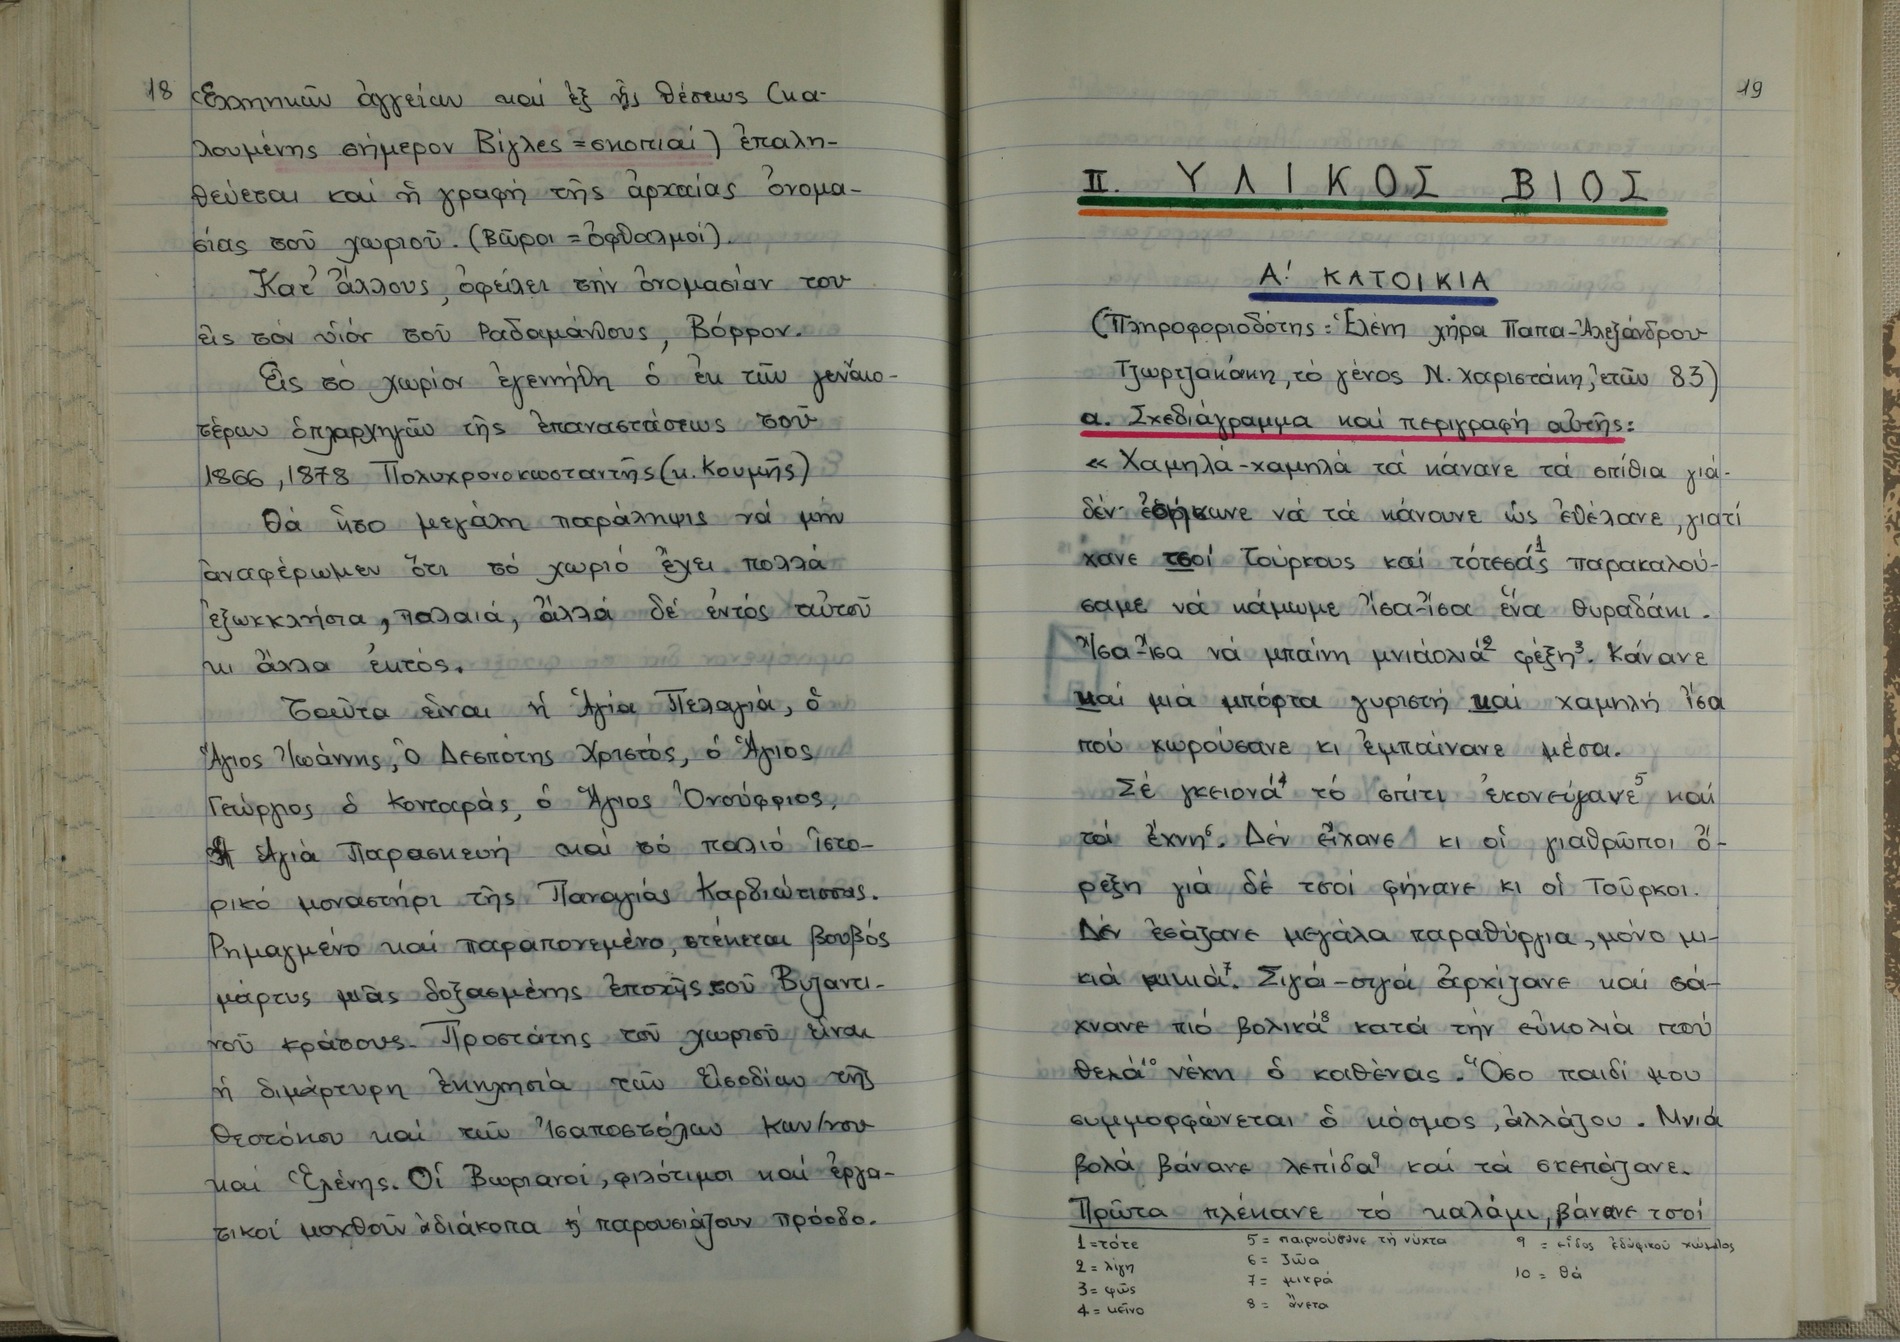 18
Ἑλληνικῶν ἀγγείων καί ἐξ ἧς θέσεως (κα-
λουμένης σήμερον Βίγλες = σκοπιαί) ἐπαλη-
θεύεται καί ἡ γραφή τῆς ἀρχαίας ὀνομα-
σίας τοῦ χωριοῦ. (Βῶροι = ὀφθαλμοί).
Κατ' ἄλλους, ὀφείλει τήν ὀνομασίαν του
εἰς τόν υἱόν τοῦ Ραδαμάνθους, Βόρρον.
Εἰς τό χωρίον ἐγεννήθη ὁ ἐκ τῶν γενναιο-
τέρων ὁπλαρχηγῶν τῆς ἐπαναστάσεως τοῦ
1866, 1878 Πολυχρονοκωσταντῆς (κ. Κουμῆς)
Θά ἦτο μεγάλη παράληψις νά μήν
ἀναφέρωμεν ὅτι τό χωριό ἔχει πολλά
ἐξωκκλήσια, παλαιά, ἄλλα δέ ἐντός αὐτοῦ
κι ἄλλα ἐκτός.
Τοῦτα εἶναι ἡ Ἁγία Πελαγιά, ὁ
Ἅγιος Ἰωάννης, Ὁ Δεσπότης Χριστός, ὁ Ἅγιος
Γεώργιος ὁ Κονταράς, ὁ Ἅγιος Ὀνούφριος,
Ἡ Ἁγιά Παρασκευή καί τό παλιό ἱστο-
ρικό μοναστήρι τῆς Παναγιάς Καρδιώτισσας.
Ρημαγμένο καί παραπονεμένο, στέκεται βουβός
μάρτυς μιᾶς δοξασμένης ἐποχῆς τοῦ Βυζαντι-
νοῦ κράτους. Προστάτης τοῦ χωριοῦ εἶναι
ἡ διμάρτυρη ἐκκλησία τῶν Εἰσοδίων τῆς
Θεοτόκου καί τῶν Ἰσαποστόλων Κων/νου
καί Ἑλένης. Οἱ Βωριανοί, φιλότιμοι καί ἐργα-
τικοί μοχθοῦν ἀδιάκοπα κ' παρουσιάζουν πρόοδο.
19
II. ΥΛΙΚΟΣ ΒΙΟΣ
Α' ΚΑΤΟΙΚΙΑ
(Πληροφοριοδότης: Ἑλένη χήρα Παπα-Ἀλεξάνδρου
Τζωρτζακάκη, τό γένος Ν. Χαριστάκη, ἐτῶν 83)
α. Σχεδιάγραμμα καί περιγραφή αὐτῆς:
« Χαμηλά-χαμηλά τά κάνανε τά σπίθια γιά-
δέν νά τά κάνουνε ὡς ἐθέλανε, γιατί
χανε τσοί Τούρκους καί τότεσάς¹ παρακαλού-
σαμε νά κάμωμε ἴσα-ἴσα ἕνα θυραδάκι.
Ἴσα-ἴσα νά μπαίνη μνιάολιά² φέξη³. Κάνανε
καί μιά μπόρτα γυριστή καί χαμηλή ἴσα
πού χωρούσανε κι ἐμπαίνανε μέσα.
Σέ γκειονά⁴ τό σπίτι ἐκονεύγανε⁵ καί
τά ἔχνη⁶. Δέν εἴχανε κι οἱ γιαθρῶποι ὄ-
ρεξη γιά δέ τσοί φήνανε κι οἱ Τοῦρκοι.
Δέν ἐσάζανε μεγάλα παραθύργια, μόνο μι-
κιά μικιά⁷. Σιγά-σιγά ἀρχίζανε καί σά-
χνανε πιό βολικά⁸ κατά τήν εὐκολιά πού
θελά¹⁰ νέχη ὁ καθένας. Ὅσο παιδί μου
συμμορφώνεται ὁ κόσμος, ἀλλάζου. Μνιά
βολά βάνανε λεπίδα⁹ καί τά σκεπάζανε.
Πρῶτα πλέκανε τό καλάμι, βάνανε τσοί
1 = τότε
2 = λίγη
3 = φῶς
4 = κεῖνο
5 = παιρνούσανε τή νύχτα
6 = ζῶα
7 = μικρά
8 = ἄνετα
9 = εἶδος ἐδαφικοῦ χώματος
10 = θά